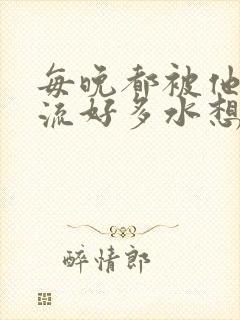 每晚都被他
流好多水想
醉情郎